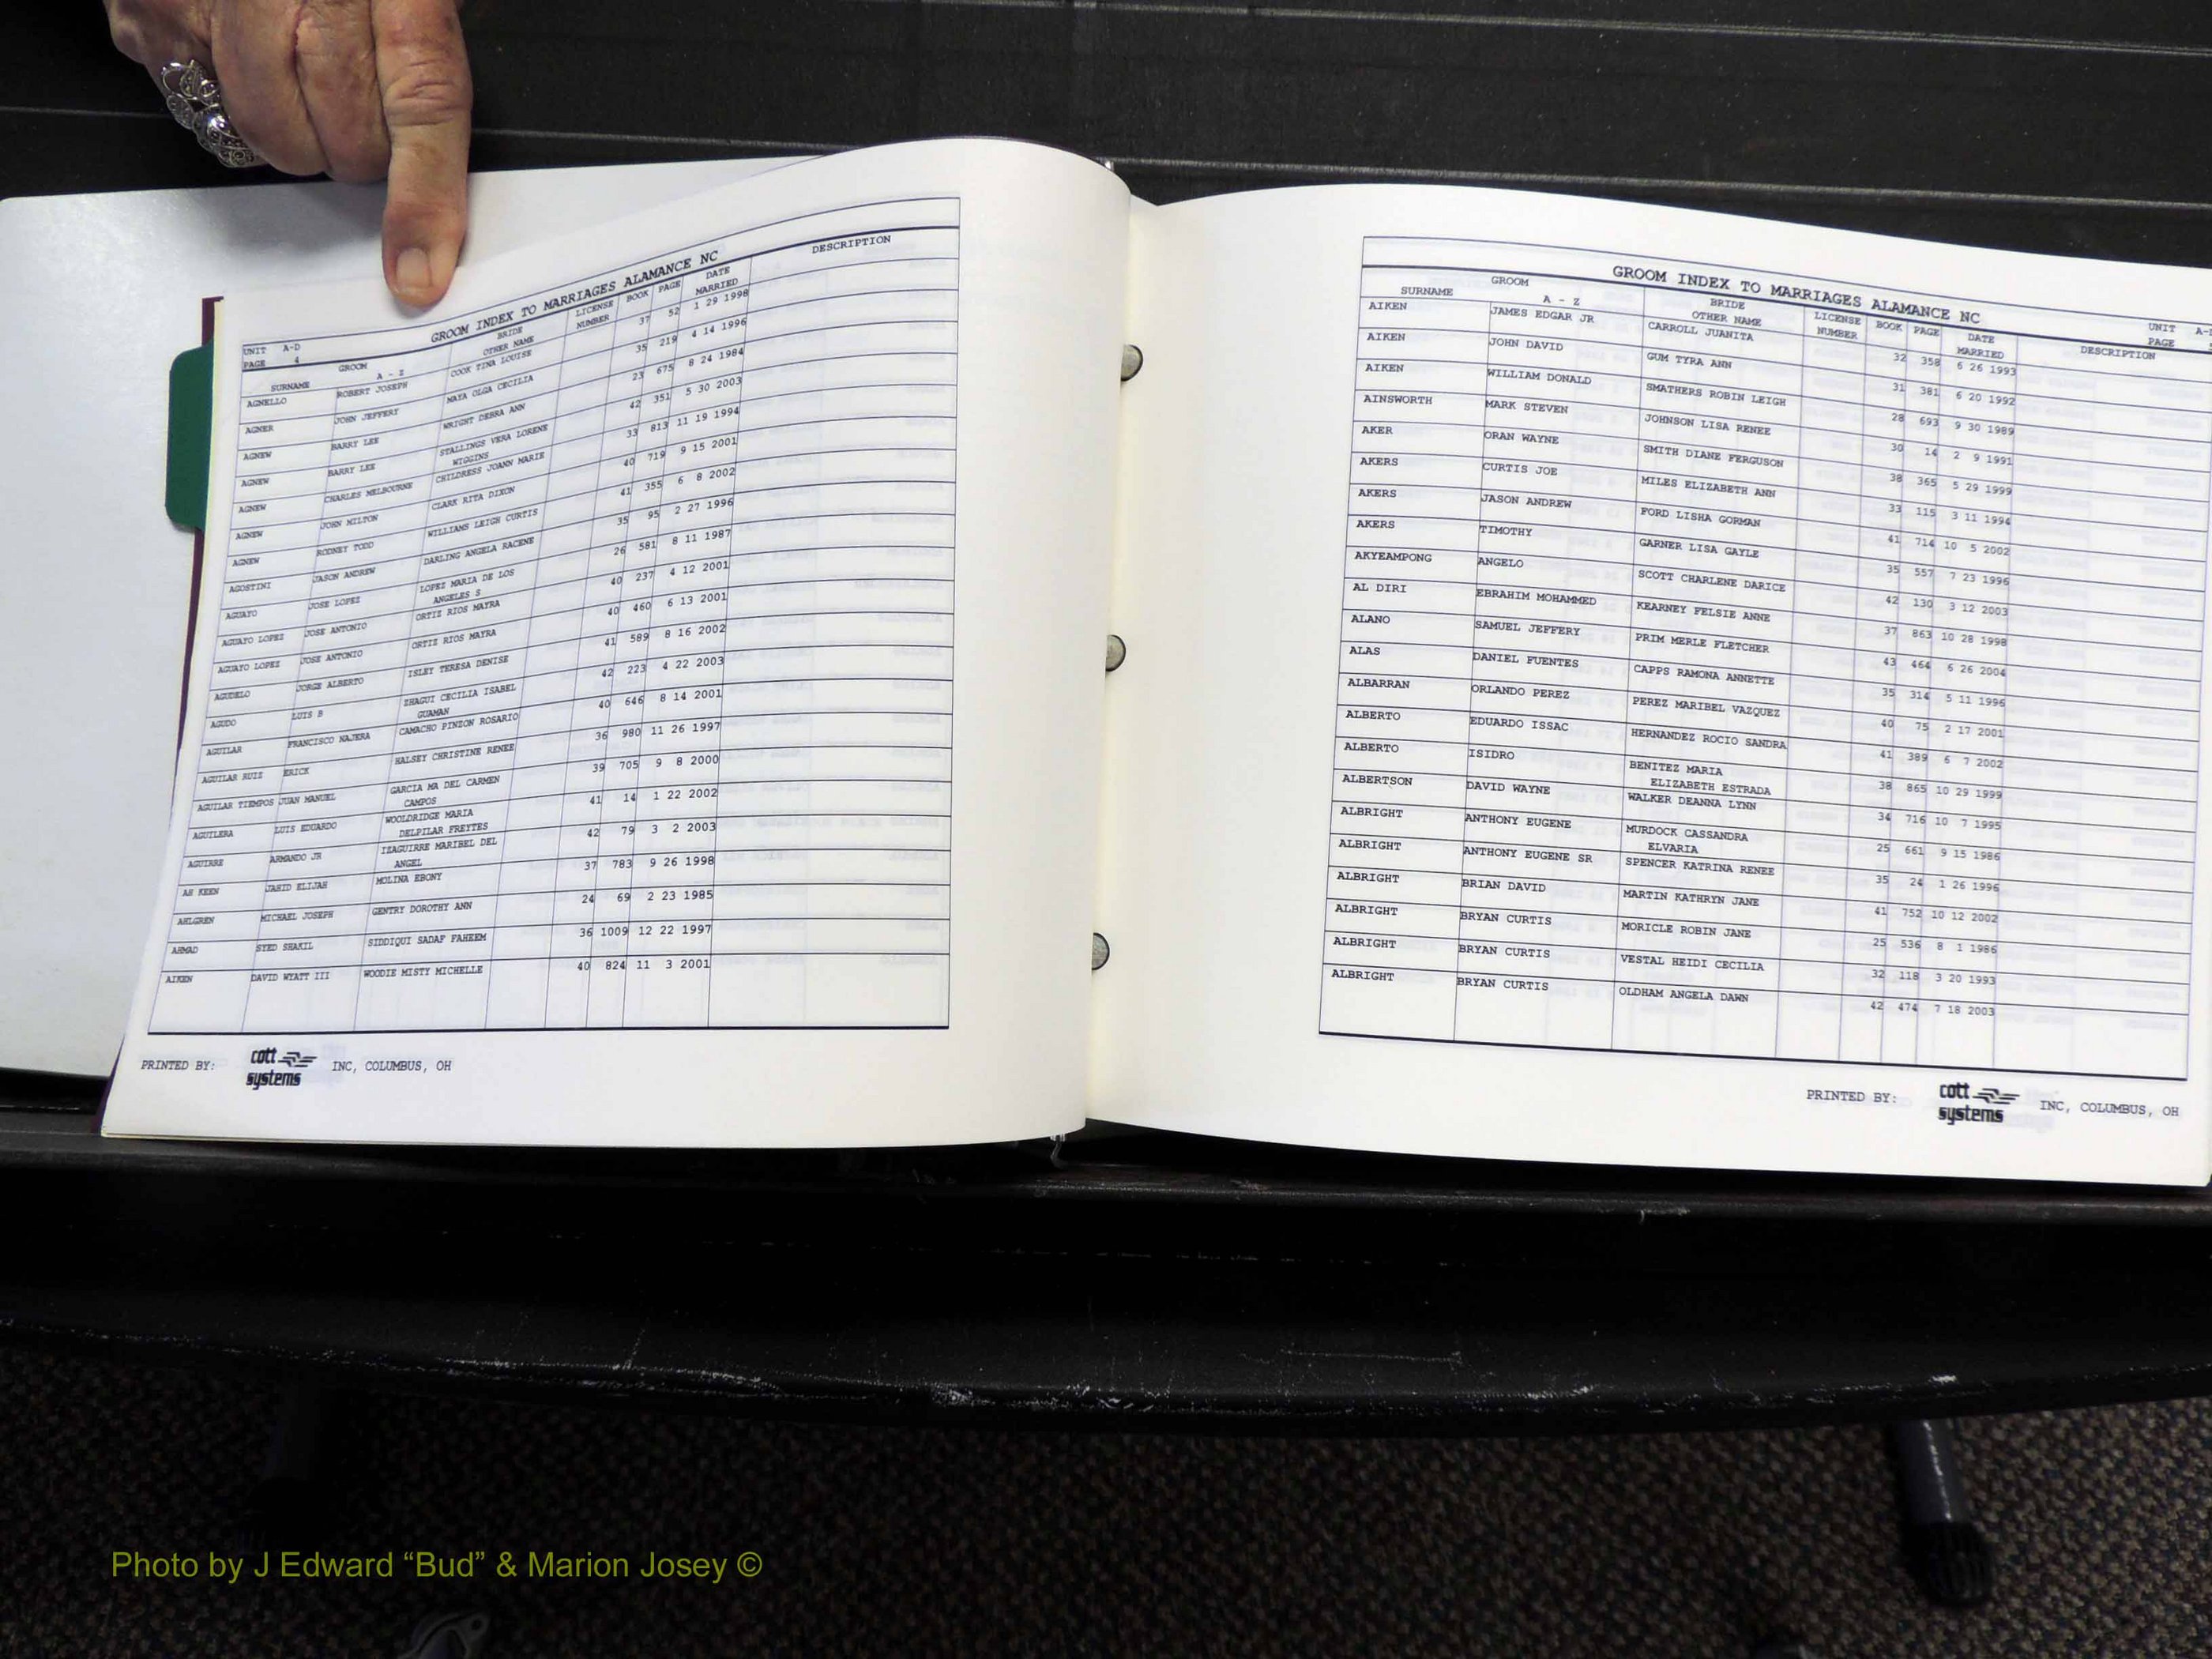 GROOM INDEX TO MARRIAGES ALAMANCE NC
UNIT A-D
PAGE 4
SURNAME GROOM A - Z BRIDE OTHER NAME LICENSE NUMBER BOOK PAGE DATE MARRIED DESCRIPTION
AGNELLO ROBERT JOSEPH COOK TINA LOUISE 37 52 1 29 1998
AGNER JOHN JEFFERY MAYA OLGA CECILIA 35 219 4 14 1996
AGNEW BARRY LEE WRIGHT DEBRA ANN 23 675 8 24 1984
AGNEW BARRY LEE STALLINGS VERA LORENE 42 351 5 30 2003
WIGGINS
AGNEW CHARLES MELBOURNE CHILDRESS JOANN MARIE 33 813 11 19 1994
AGNEW JOHN MILTON CLARK RITA DIXON 40 719 9 15 2001
AGNEW RODNEY TODD WILLIAMS LEIGH CURTIS 41 355 6 8 2002
AGOSTINI JASON ANDREW DARLING ANGELA RACENE 35 95 2 27 1996
AGUAYO JOSE LOPEZ LOPEZ MARIA DE LOS 26 581 8 11 1987
ANGELES S
AGUAYO LOPEZ JOSE ANTONIO ORTIZ RIOS MAYRA 40 237 4 12 2001
AGUAYO LOPEZ JOSE ANTONIO ORTIZ RIOS MAYRA 40 460 6 13 2001
AGUDELO JORGE ALBERTO ISLEY TERESA DENISE 41 589 8 16 2002
AGUDO LUIS B ZHAGUI CECILIA ISABEL 42 223 4 22 2003
GUAMAN
AGUILAR FRANCISCO NAJERA CAMACHO PINZON ROSARIO 40 646 8 14 2001
AGUILAR RUIZ ERICK HALSEY CHRISTINE RENEE 36 980 11 26 1997
AGUILAR TIEMPOS JUAN MANUEL GARCIA MA DEL CARMEN 39 705 9 8 2000
CAMPOS
AGUILERA LUIS EDUARDO WOOLDRIDGE MARIA 41 14 1 22 2002
DELPILAR FREYTES
AGUIRRE ARMANDO JR IZAGUIRRE MARIBEL DEL 42 79 3 2 2003
ANGEL
AH KEEN JAHID ELIJAH MOLINA EBONY 37 783 9 26 1998
AHLGREN MICHAEL JOSEPH GENTRY DOROTHY ANN 24 69 2 23 1985
AHMAD SYED SHAKIL SIDDIQUI SADAF FAHEEM 36 1009 12 22 1997
AIKEN DAVID WYATT III WOODIE MISTY MICHELLE 40 824 11 3 2001
PRINTED BY: cott systems INC, COLUMBUS, OH
GROOM INDEX TO MARRIAGES ALAMANCE NC
UNIT
PAGE
SURNAME GROOM A - Z BRIDE OTHER NAME LICENSE NUMBER BOOK PAGE DATE MARRIED DESCRIPTION
AIKEN JAMES EDGAR JR CARROLL JUANITA 32 358 6 26 1993
AIKEN JOHN DAVID GUM TYRA ANN 31 381 6 20 1992
AIKEN WILLIAM DONALD SMATHERS ROBIN LEIGH 28 693 9 30 1989
AINSWORTH MARK STEVEN JOHNSON LISA RENEE 30 14 2 9 1991
AKER ORAN WAYNE SMITH DIANE FERGUSON 38 365 5 29 1999
AKERS CURTIS JOE MILES ELIZABETH ANN 33 115 3 11 1994
AKERS JASON ANDREW FORD LISHA GORMAN 41 714 10 5 2002
AKERS TIMOTHY GARNER LISA GAYLE 35 557 7 23 1996
AKYEAMPONG ANGELO SCOTT CHARLENE DARICE 42 130 3 12 2003
AL DIRI EBRAHIM MOHAMMED KEARNEY FELSIE ANNE 37 863 10 28 1998
ALANO SAMUEL JEFFERY PRIM MERLE FLETCHER 43 464 6 26 2004
ALAS DANIEL FUENTES CAPPS RAMONA ANNETTE 35 314 5 11 1996
ALBARRAN ORLANDO PEREZ PEREZ MARIBEL VAZQUEZ 40 75 2 17 2001
ALBERTO EDUARDO ISSAC HERNANDEZ ROCIO SANDRA 41 389 6 7 2002
ALBERTO ISIDRO BENITEZ MARIA 38 865 10 29 1999
ELIZABETH ESTRADA
ALBERTSON DAVID WAYNE WALKER DEANNA LYNN 34 716 10 7 1995
ALBRIGHT ANTHONY EUGENE MURDOCK CASSANDRA 25 661 9 15 1986
ELVARIA
ALBRIGHT ANTHONY EUGENE SR SPENCER KATRINA RENEE 35 24 1 26 1996
ALBRIGHT BRIAN DAVID MARTIN KATHRYN JANE 41 752 10 12 2002
ALBRIGHT BRYAN CURTIS MORICLE ROBIN JANE 25 536 8 1 1986
ALBRIGHT BRYAN CURTIS VESTAL HEIDI CECILIA 32 118 3 20 1993
ALBRIGHT BRYAN CURTIS OLDHAM ANGELA DAWN 42 474 7 18 2003
PRINTED BY: cott systems INC, COLUMBUS, OH
Photo by J Edward “Bud” & Marion Josey ©